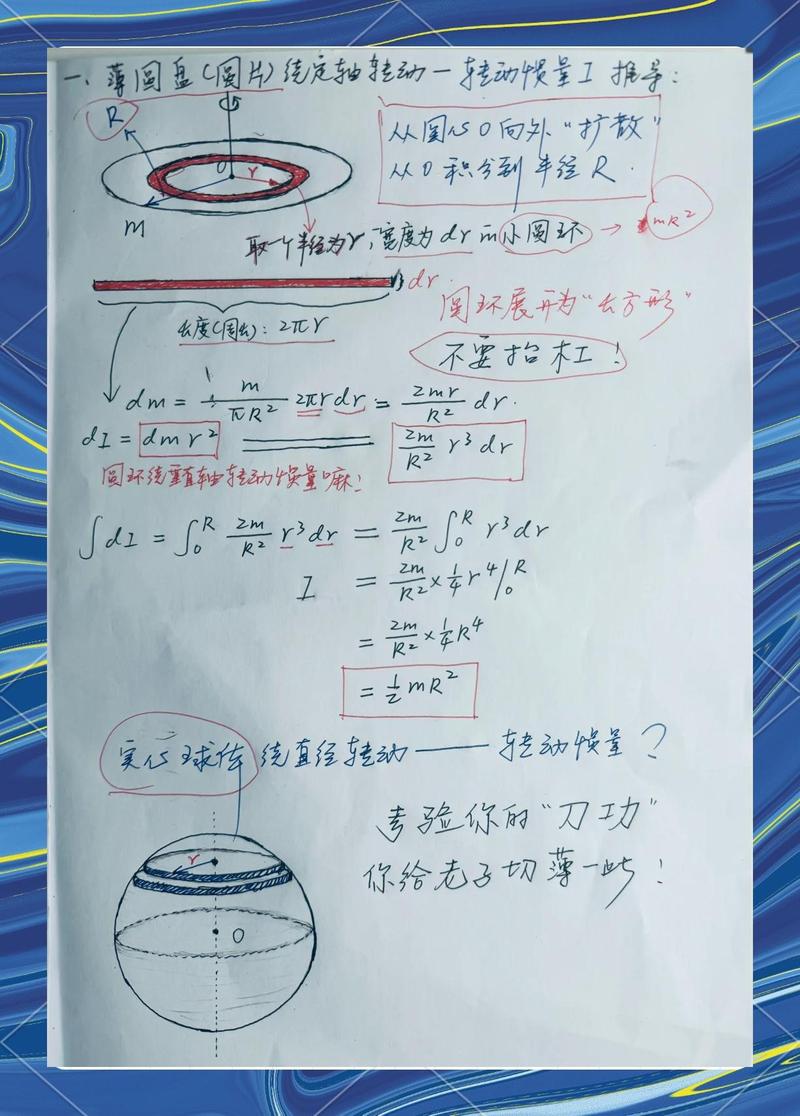 一、薄圆盘(圆片)绕定轴转动—转动惯量I 推导:
R
O
r
m
从圆心O向外"扩散"
从0积分到半径R.
取一个半径为r,宽度为dr的小圆环 → mR²
dr.
长度(周长): 2πr
圆环展开为"长方形"
不要抬杠!
dm = m/πR² 2πr dr = 2mr/R² dr.
dI = dm r² = 2m/R² r³ dr
圆环绕垂直轴转动惯量嘛!
∫dI = ∫₀ᴿ 2m/R² r³ dr = 2m/R² ∫₀ᴿ r³ dr
I = 2m/R² × 1/4 r⁴ |₀ᴿ
= 2m/R² × 1/4 R⁴
= 1/2 mR²
实心球体绕直径转动——转动惯量?
考验你的"刀功"
你给老子切薄一些!
r
O